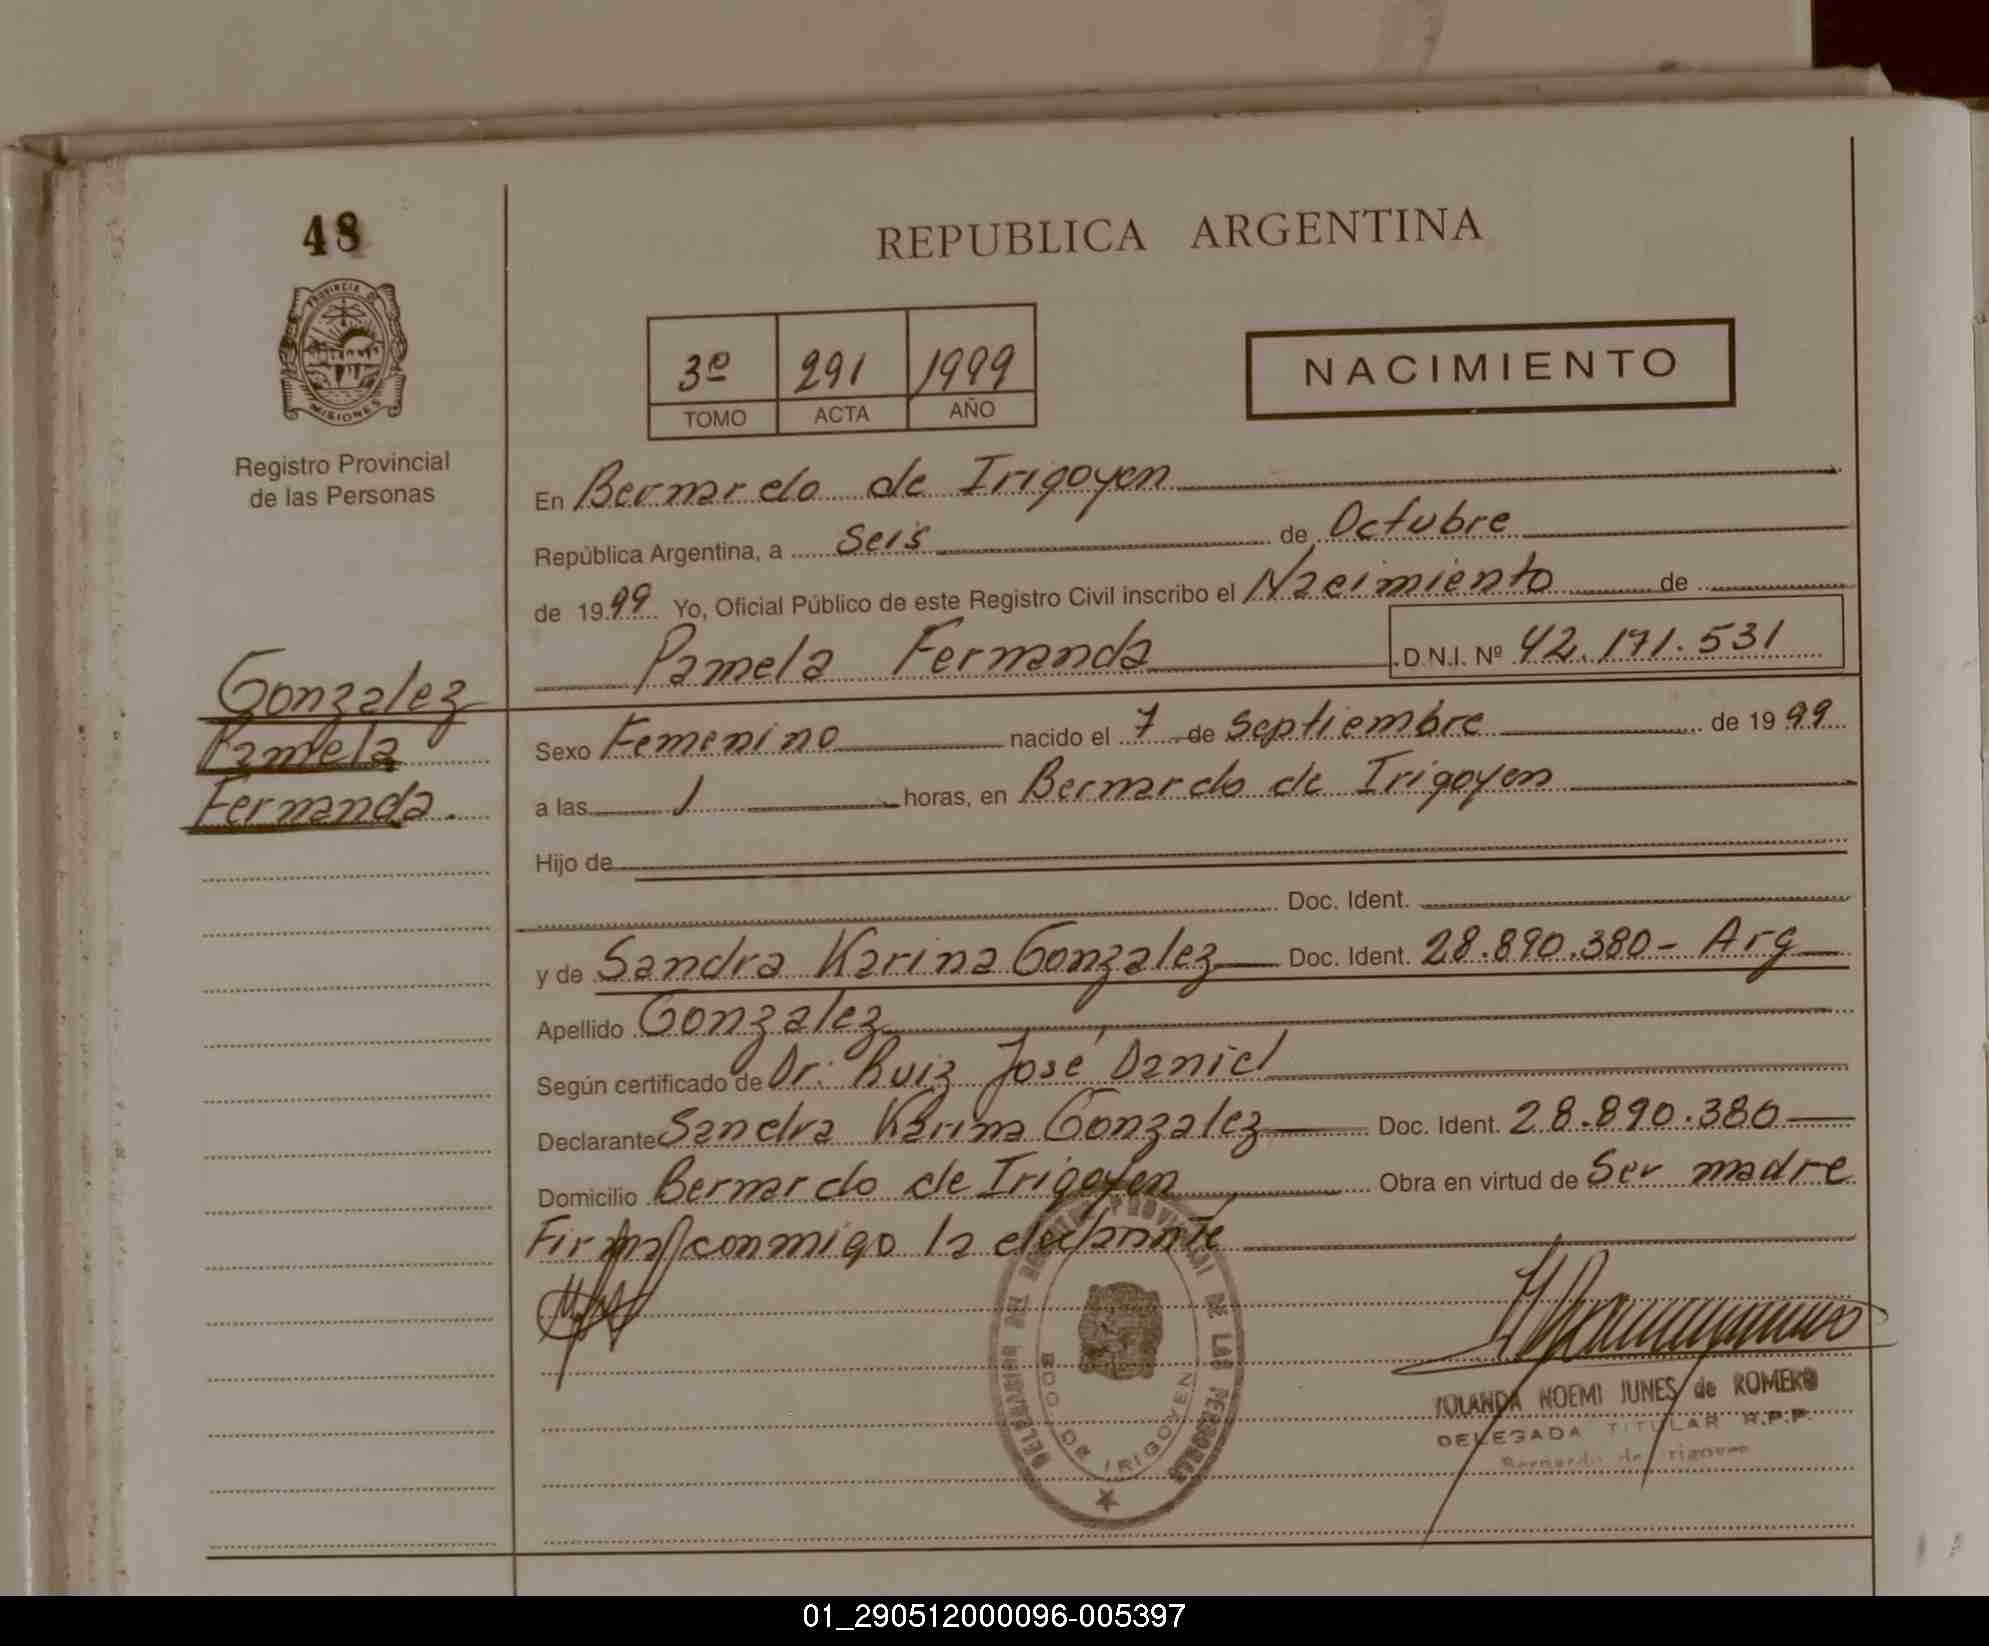 48
REPUBLICA ARGENTINA
PROVINCIA DE
MISIONES
3º 291 1999
TOMO ACTA AÑO
NACIMIENTO
Registro Provincial
de las Personas
En Bernardo de Irigoyen
República Argentina, a seis de Octubre
de 1999 Yo, Oficial Público de este Registro Civil inscribo el Nacimiento de
Pamela Fernanda D.N.I. Nº 42.171.531
Gonzalez
Pamela
Fernanda.
Sexo Femenino nacido el 7 de Septiembre de 1999
a las 1 horas, en Bernardo de Irigoyen
Hijo de
Doc. Ident.
y de Sandra Karina Gonzalez Doc. Ident. 28.890.380- Arg
Apellido Gonzalez
Según certificado de Dr. Ruiz José Daniel
Declarante Sandra Karina Gonzalez Doc. Ident. 28.890.380
Domicilio Bernardo de Irigoyen Obra en virtud de Ser madre
Firma conmigo la declarante
DELEGACION DEL REGISTRO PROVINCIAL DE LAS PERSONAS
BDO DE IRIGOYEN
YOLANDA NOEMI JUNES de ROMERO
DELEGADA TITULAR R.P.P.
Bernardo de Irigoyen
01_290512000096-005397